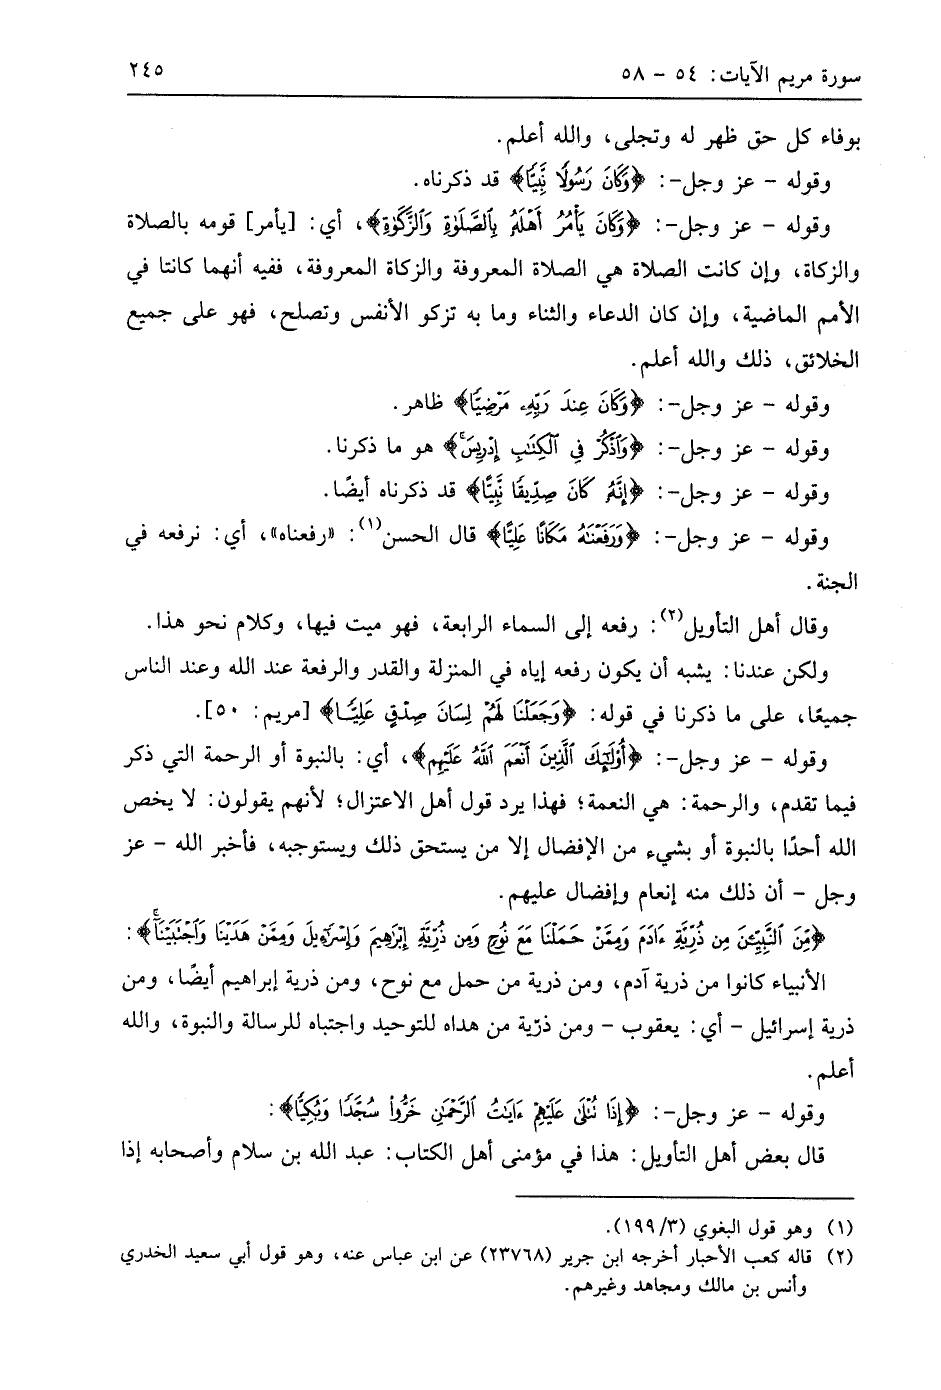 سورة مريم الآيات: ٥٤ - ٥٨ ٢٤٥
بوفاء كل حق ظهر له وتجلى، والله أعلم.
وقوله - عز وجل-: ﴿وَكَانَ رَسُولًا نَّبِيًّا﴾ قد ذكرناه.
وقوله - عز وجل-: ﴿وَكَانَ يَأْمُرُ أَهْلَهُ بِٱلصَّلَوٰةِ وَٱلزَّكَوٰةِ﴾، أي: [يأمر] قومه بالصلاة
والزكاة، وإن كانت الصلاة هي الصلاة المعروفة والزكاة المعروفة، ففيه أنهما كانتا في
الأمم الماضية، وإن كان الدعاء والثناء وما به تزكو الأنفس وتصلح، فهو على جميع
الخلائق، ذلك والله أعلم.
وقوله - عز وجل-: ﴿وَكَانَ عِندَ رَبِّهِۦ مَرْضِيًّا﴾ ظاهر.
وقوله - عز وجل-: ﴿وَٱذْكُرْ فِي ٱلْكِتَٰبِ إِدْرِيسَۚ﴾ هو ما ذكرنا.
وقوله - عز وجل-: ﴿إِنَّهُۥ كَانَ صِدِّيقًا نَّبِيًّا﴾ قد ذكرناه أيضًا.
وقوله - عز وجل-: ﴿وَرَفَعْنَٰهُ مَكَانًا عَلِيًّا﴾ قال الحسن(١): «رفعناه»، أي: نرفعه في
الجنة.
وقال أهل التأويل(٢): رفعه إلى السماء الرابعة، فهو ميت فيها، وكلام نحو هذا.
ولكن عندنا: يشبه أن يكون رفعه إياه في المنزلة والقدر والرفعة عند الله وعند الناس
جميعًا، على ما ذكرنا في قوله: ﴿وَجَعَلْنَا لَهُمْ لِسَانَ صِدْقٍ عَلِيًّا﴾ [مريم: ٥٠].
وقوله - عز وجل-: ﴿أُوْلَٰٓئِكَ ٱلَّذِينَ أَنْعَمَ ٱللَّهُ عَلَيْهِم﴾، أي: بالنبوة أو الرحمة التي ذكر
فيما تقدم، والرحمة: هي النعمة؛ فهذا يرد قول أهل الاعتزال؛ لأنهم يقولون: لا يخص
الله أحدًا بالنبوة أو بشيء من الإفضال إلا من يستحق ذلك ويستوجبه، فأخبر الله - عز
وجل - أن ذلك منه إنعام وإفضال عليهم.
﴿مِّنَ ٱلنَّبِيِّـۧنَ مِن ذُرِّيَّةِ ءَادَمَ وَمِمَّنْ حَمَلْنَا مَعَ نُوحٍ وَمِن ذُرِّيَّةِ إِبْرَٰهِيمَ وَإِسْرَٰٓءِيلَ وَمِمَّنْ هَدَيْنَا وَٱجْتَبَيْنَآۚ﴾:
الأنبياء كانوا من ذرية آدم، ومن ذرية من حمل مع نوح، ومن ذرية إبراهيم أيضًا، ومن
ذرية إسرائيل - أي: يعقوب - ومن ذرّية من هداه للتوحيد واجتباه للرسالة والنبوة، والله
أعلم.
وقوله - عز وجل-: ﴿إِذَا تُتْلَىٰ عَلَيْهِمْ ءَايَٰتُ ٱلرَّحْمَٰنِ خَرُّوا۟ سُجَّدًا وَبُكِيًّا﴾:
قال بعض أهل التأويل: هذا في مؤمنى أهل الكتاب: عبد الله بن سلام وأصحابه إذا
(١) وهو قول البغوي (٣/ ١٩٩).
(٢) قاله كعب الأحبار أخرجه ابن جرير (٢٣٧٦٨) عن ابن عباس عنه، وهو قول أبي سعيد الخدري
وأنس بن مالك ومجاهد وغيرهم.